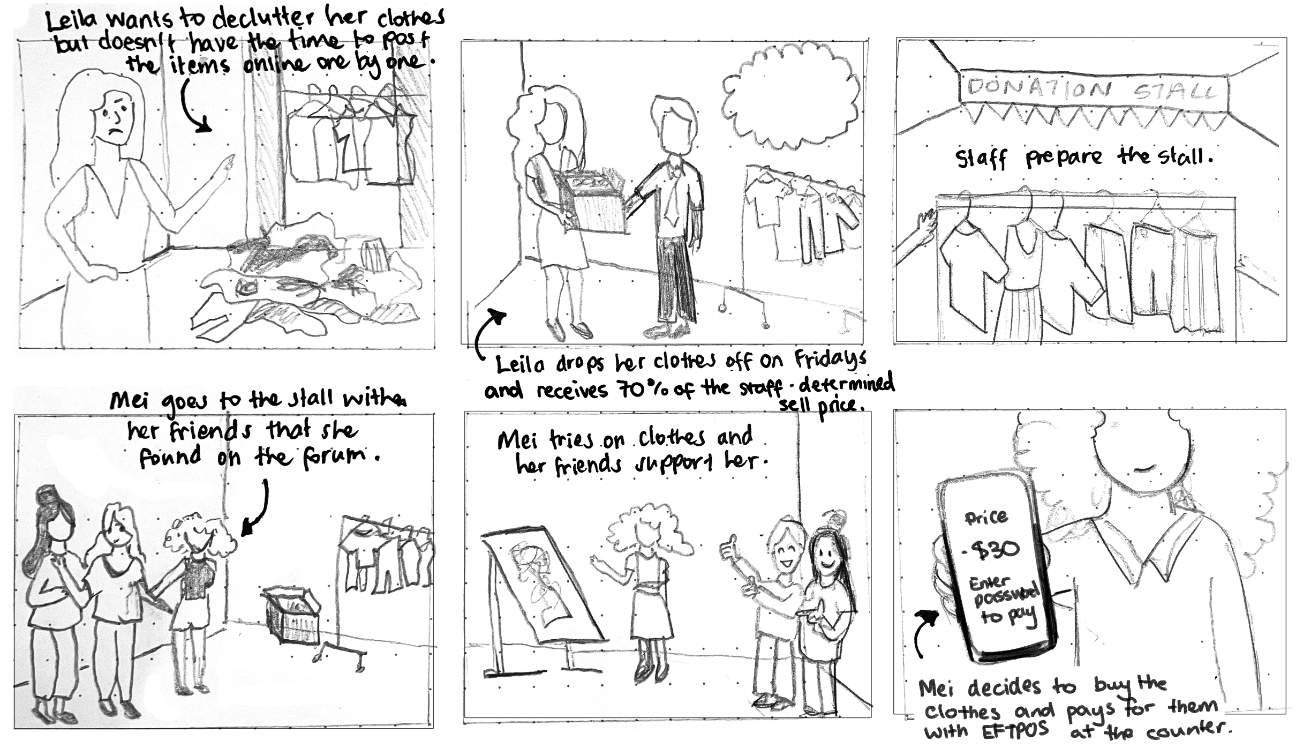 Leila wants to declutter her clothes
but doesn't have the time to post
the items online one by one.
Leila drops her clothes off on Fridays
and receives 70% of the staff-determined
sell price.
DONATION STALL
Staff prepare the stall.
Mei goes to the stall with
her friends that she
found on the forum.
Mei tries on clothes and
her friends support her.
Price
-$30
Enter
password
to pay
Mei decides to buy the
clothes and pays for them
with EFTPOS at the counter.